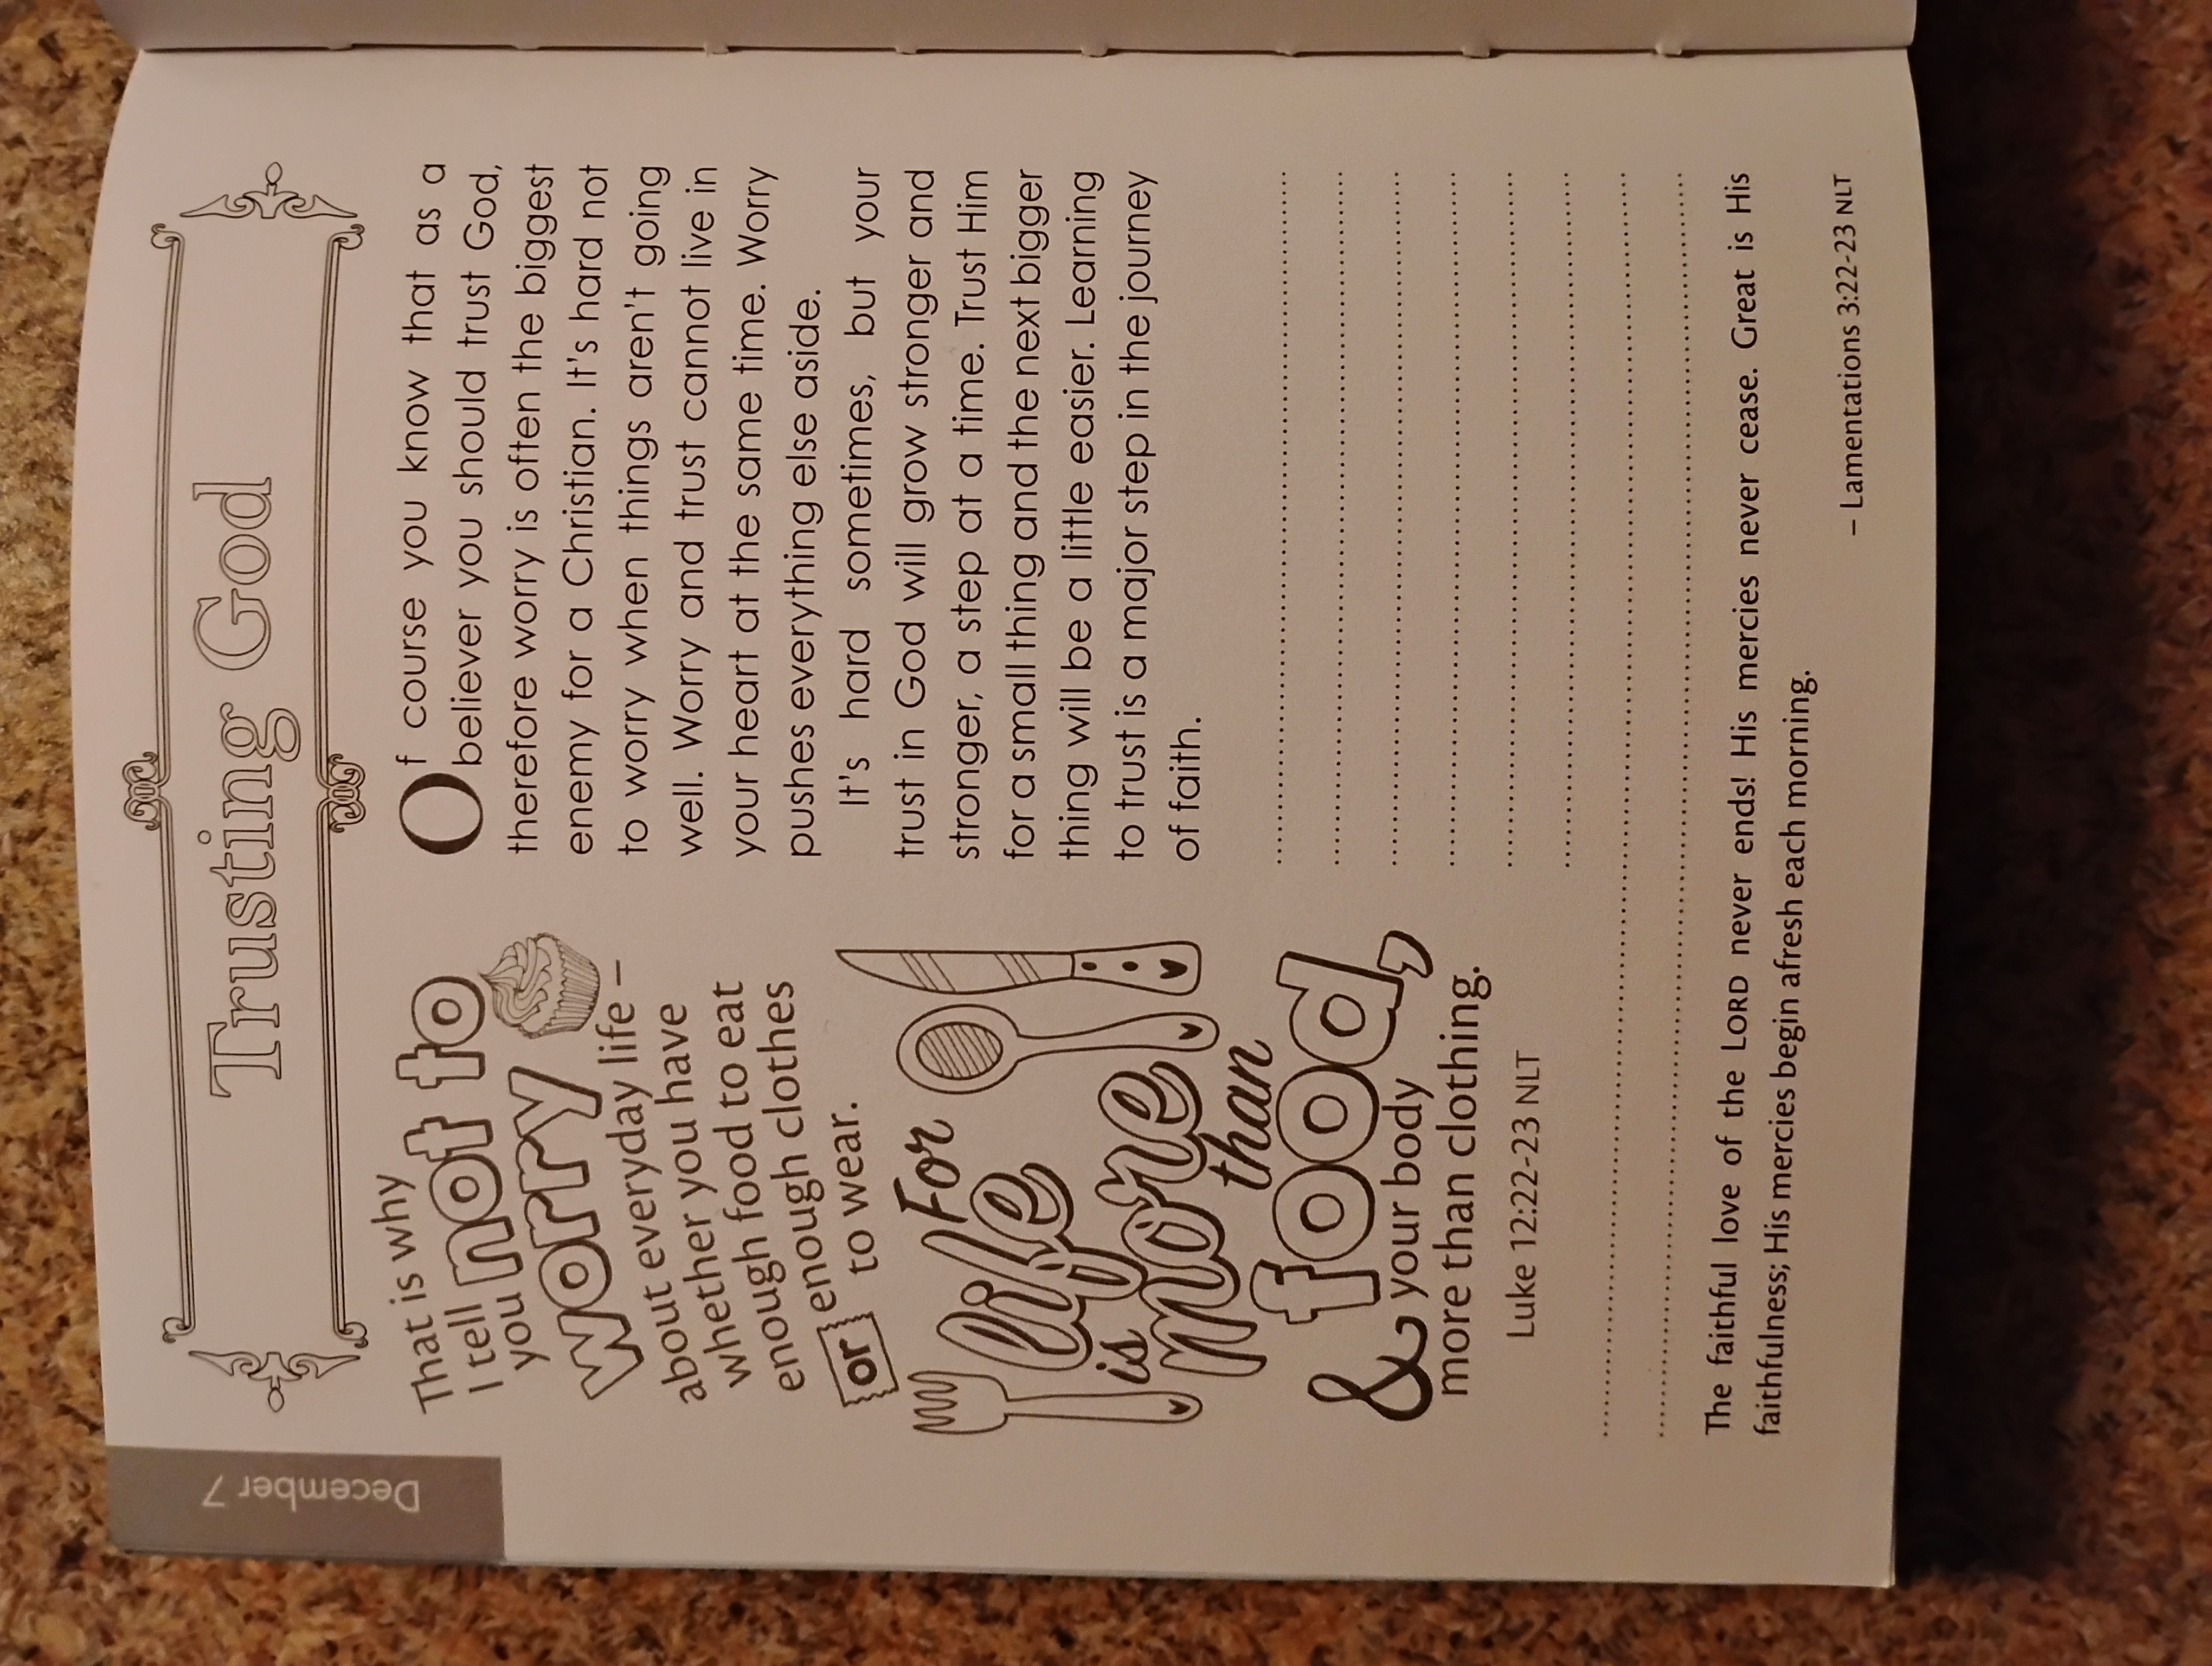 December 7
Trusting God
That is why
I tell
you not to
worry
about everyday life –
whether you have
enough food to eat
or enough clothes
to wear.
For
life
is
more
than
food,
& your body
more than clothing.
Luke 12:22-23 NLT
Of course you know that as a
believer you should trust God,
therefore worry is often the biggest
enemy for a Christian. It's hard not
to worry when things aren't going
well. Worry and trust cannot live in
your heart at the same time. Worry
pushes everything else aside.
It's hard sometimes, but your
trust in God will grow stronger and
stronger, a step at a time. Trust Him
for a small thing and the next bigger
thing will be a little easier. Learning
to trust is a major step in the journey
of faith.
The faithful love of the LORD never ends! His mercies never cease. Great is His
faithfulness; His mercies begin afresh each morning.
– Lamentations 3:22-23 NLT